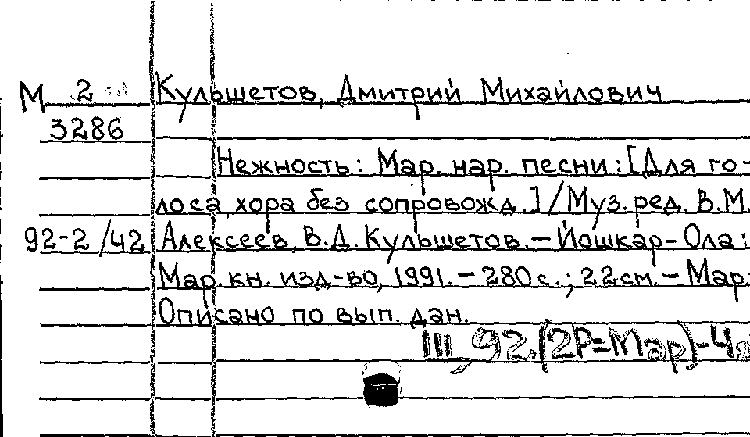 М 2 Кульшетов, Дмитрий Михайлович
3286
Нежность: Мар. нар. песни: [Для го-
лоса, хора без сопровожд.] / Муз. ред. В.М.
92-2/42 Алексеев, В.Д. Кульшетов. — Йошкар-Ола:
Мар. кн. изд-во, 1991. — 280 с.; 22 см. — Мар.
Описано по вып. дан.
III, 92. (2Р=Мар)-4